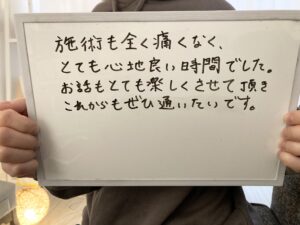 施術も全く痛くなく、
とても心地良い時間でした。
お話もとても楽しくさせて頂き
これからもぜひ通いたいです。